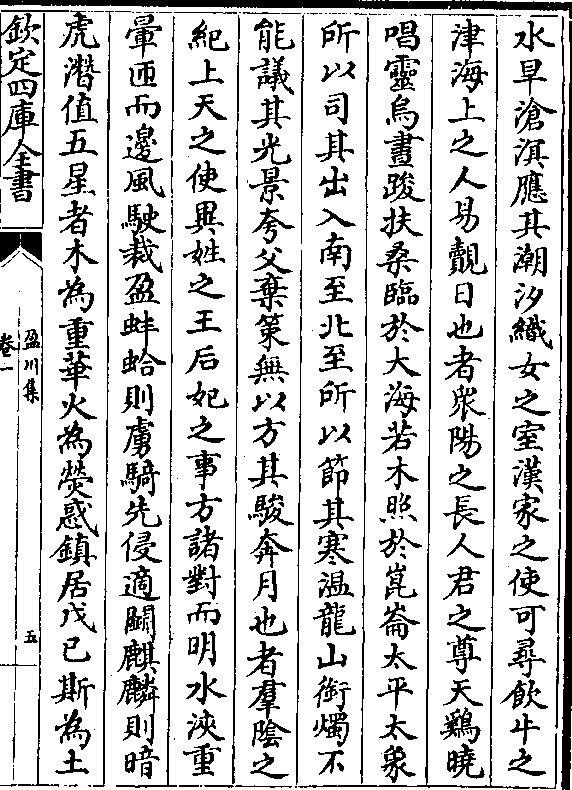 水旱滄溟應其潮汐織女之室漢家之使可尋飲牛之
津海上之人易覿日也者衆陽之長人君之尊天鷄曉
唱靈烏晝踆扶桑臨於大海若木照於崑崙太平太象
所以司其出入南至北至所以節其寒温龍山銜燭不
能議其光景夸父棄策無以方其駿奔月也者羣隂之
紀上天之使異姓之王后妃之事方諸對而明水浹重
暈匝而邊風駛裁盈蚌蛤則虜騎先侵適鬭麒麟則暗
虎潛值五星者木為重華火為熒惑鎮居戊已斯為土
欽定四庫全書
盈川集
卷一
五